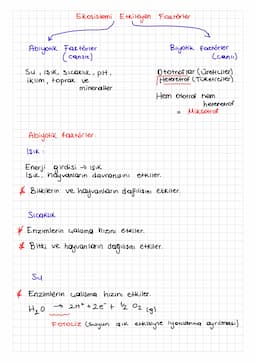 Ekosistemi Etkileyen Faktörler
Abiyotik Faktörler
(cansız)
Biyotik faktörler
(canlı)
Su, ışık, sıcaklık, pH,
iklim, toprak ve
mineraller
Ototroflar (Üreticiler)
Heterotrof (Tüketiciler)
Hem ototrof hem
heterotrof
= Miksotrof
Abiyotik faktörler
Işık:
Enerji girdisi → ışık
Işık, hayvanların davranışını etkiler.
* Bitkilerin ve hayvanların dağılışını etkiler.
Sıcaklık
* Enzimlerin çalışma hızını etkiler.
* Bitki ve hayvanların dağılışını etkiler.
Su
* Enzimlerin çalışma hızını etkiler.
H₂O → 2H⁺ + 2e⁻ + ½ O₂ (g)
FOTOLİZ (suyun ışık etkisiyle iyonlarına ayrılması)